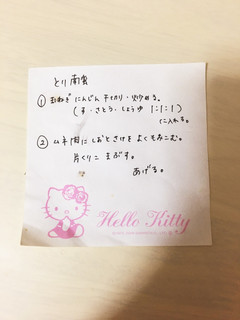 とり南蛮
① 玉ねぎ にんじん 千切り・炒める。
(す・さとう・しょうゆ 1:1:1)
に入れる。
② ムネ肉にしおとさけをよくそみこむ。
片くりこ まぶす。
あげる。
Hello Kitty